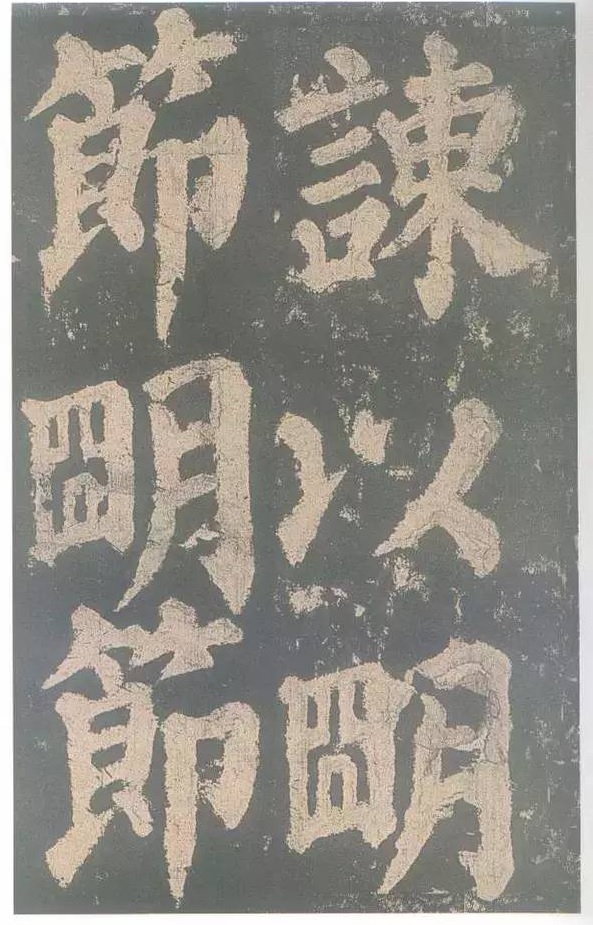 諫以明
節明節